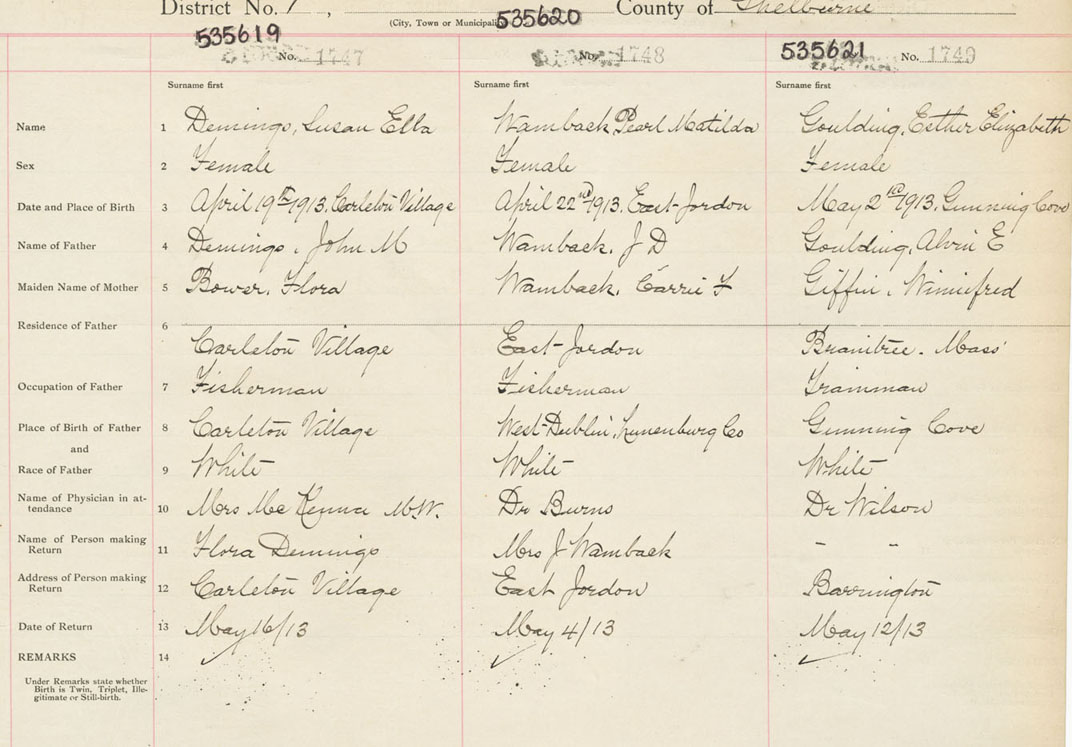 District No. 7, County of Shelburne
(City, Town or Municipality
535619 535620 535621
No. 1747 No. 1748 No. 1749
Surname first Surname first Surname first
Name 1 Demings, Susan Ella Wamback, Pearl Matilda Goulding, Esther Elizabeth
Sex 2 Female Female Female
Date and Place of Birth 3 April 19th 1913, Carleton Village April 22nd 1913, East Jordon May 2nd 1913, Gunning Cove
Name of Father 4 Demings, John M Wamback, J D Goulding, Alvin E
Maiden Name of Mother 5 Bower, Flora Wamback, Carrie F Giffin, Winnifred
Residence of Father 6
Carleton Village East Jordon Braintree. Mass
Occupation of Father 7 Fisherman Fisherman Trainman
Place of Birth of Father 8 Carleton Village West Dublin, Lunenburg Co Gunning Cove
and
Race of Father 9 White White White
Name of Physician in at-
tendance 10 Mrs McKenna M.W. Dr Burns Dr Wilson
Name of Person making
Return 11 Flora Demings Mrs J Wamback - -
Address of Person making
Return 12 Carleton Village East Jordon Barrington
Date of Return 13 May 16/13 May 4/13 May 12/13
REMARKS 14
Under Remarks state whether
Birth is Twin, Triplet, Ille-
gitimate or Still-birth.